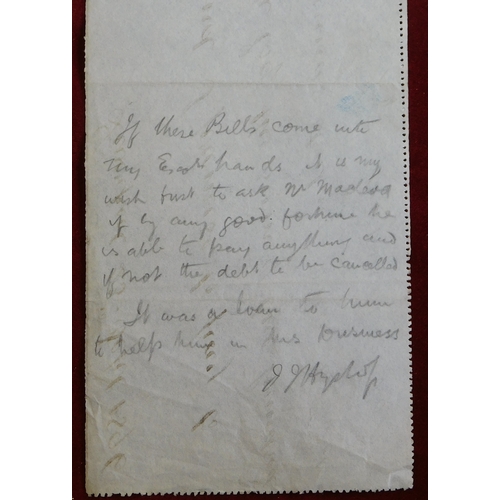 If these Bills come into
my Exors hands it is my
wish first to ask Mr
if by any good fortune he
is able to pay anything and
if not the debt to be cancelled
It was a loan to him
to help him in his business
J J Hyslop